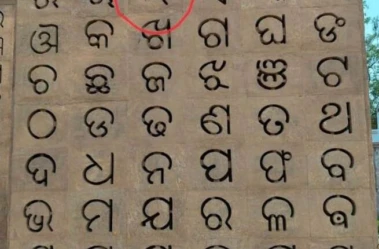 ଔ କ ଖ ଗ ଘ ଙ
ଚ ଛ ଜ ଝ ଞ ଟ
ଠ ଡ ଢ ଣ ତ ଥ
ଦ ଧ ନ ପ ଫ ବ
ଭ ମ ଯ ର ଳ ଵ